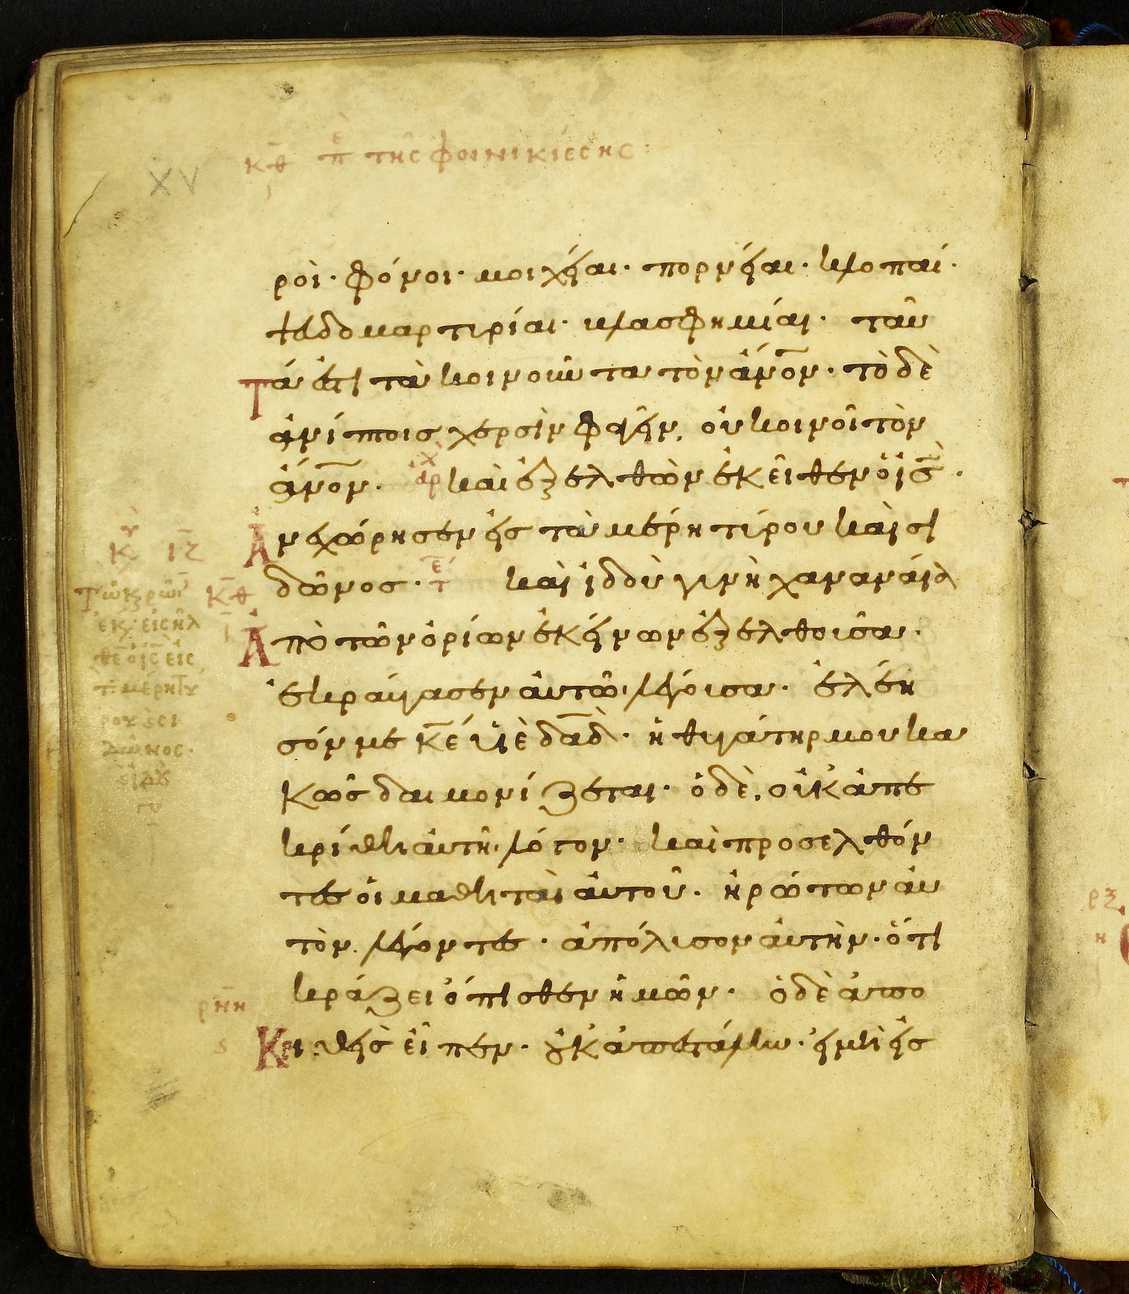 κθ π της φοινικίσσης
XV
ροὶ· φόνοι· μοιχεῖαι· πορνεῖαι· κλοπαί·
ψευδομαρτιρίαι· βλασφημίαι· ταῦ
τά ἐστι τὰ κοινοῦντα τὸν ἄνον· τὸ δὲ
ἀνίπτοις χερσὶν φαγεῖν, οὐ κοινοῖ τὸν
ἄνον. ἀρχ καὶ ἐξελθὼν ἐκεῖθεν ὁ ις
ἀνεχώρησεν εἰς τὰ μέρη τύρου καὶ σι
δῶνος· τε καὶ ἰδοὺ γυνὴ χαναναία
ἀπὸ τῶν ὁρίων ἐκείνων ἐξελθοῦσα·
ἐκραύγασεν αὐτῶ λέγουσα· ἐλέη
σόν με κε υἱὲ δαδ· ἡ θυγάτηρ μου κα
κῶς δαιμονίζεται· ὁ δὲ, οὐκ ἀπε
κρίθη αὐτῆ λόγον· καὶ προσελθόν
τες οἱ μαθηταὶ αὐτοῦ· ἠρώτων αὐ
τὸν λέγοντες· ἀπόλυσον αὐτὴν· ὅτι
κράζει ὄπισθεν ἡμῶν· ὁ δὲ ἀπο
κριθεὶς εἶπεν· οὐκ ἀπεστάλην· εἰ μὴ εἰς
κυ ιζ
κθ
ρνη
ς